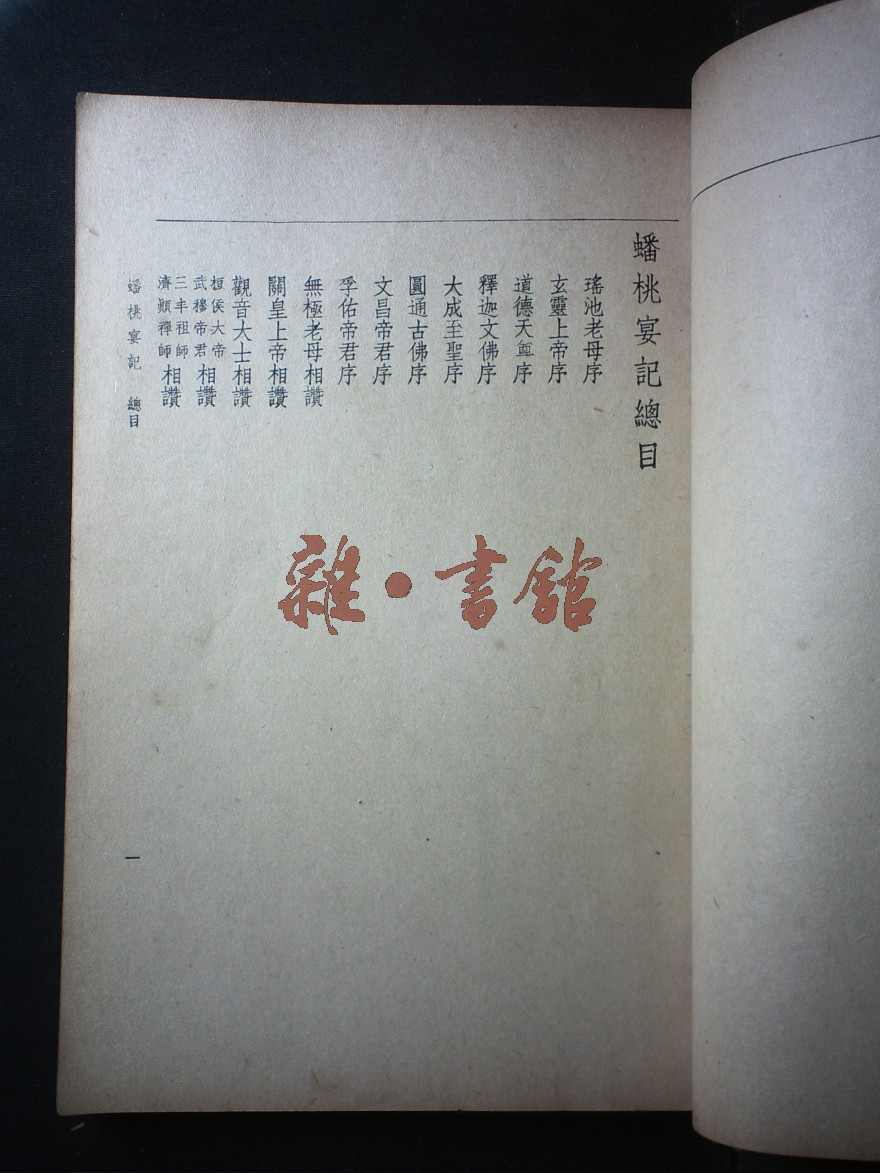 蟠桃宴記總目
瑤池老母序
玄靈上帝序
道德天尊序
釋迦文佛序
大成至聖序
圓通古佛序
文昌帝君序
孚佑帝君序
無極老母相讚
關皇上帝相讚
觀音大士相讚
桓侯大帝
武穆帝君相讚
三丰祖師
濟顛禪師相讚
蟠桃宴記 總目
一
雜•書館